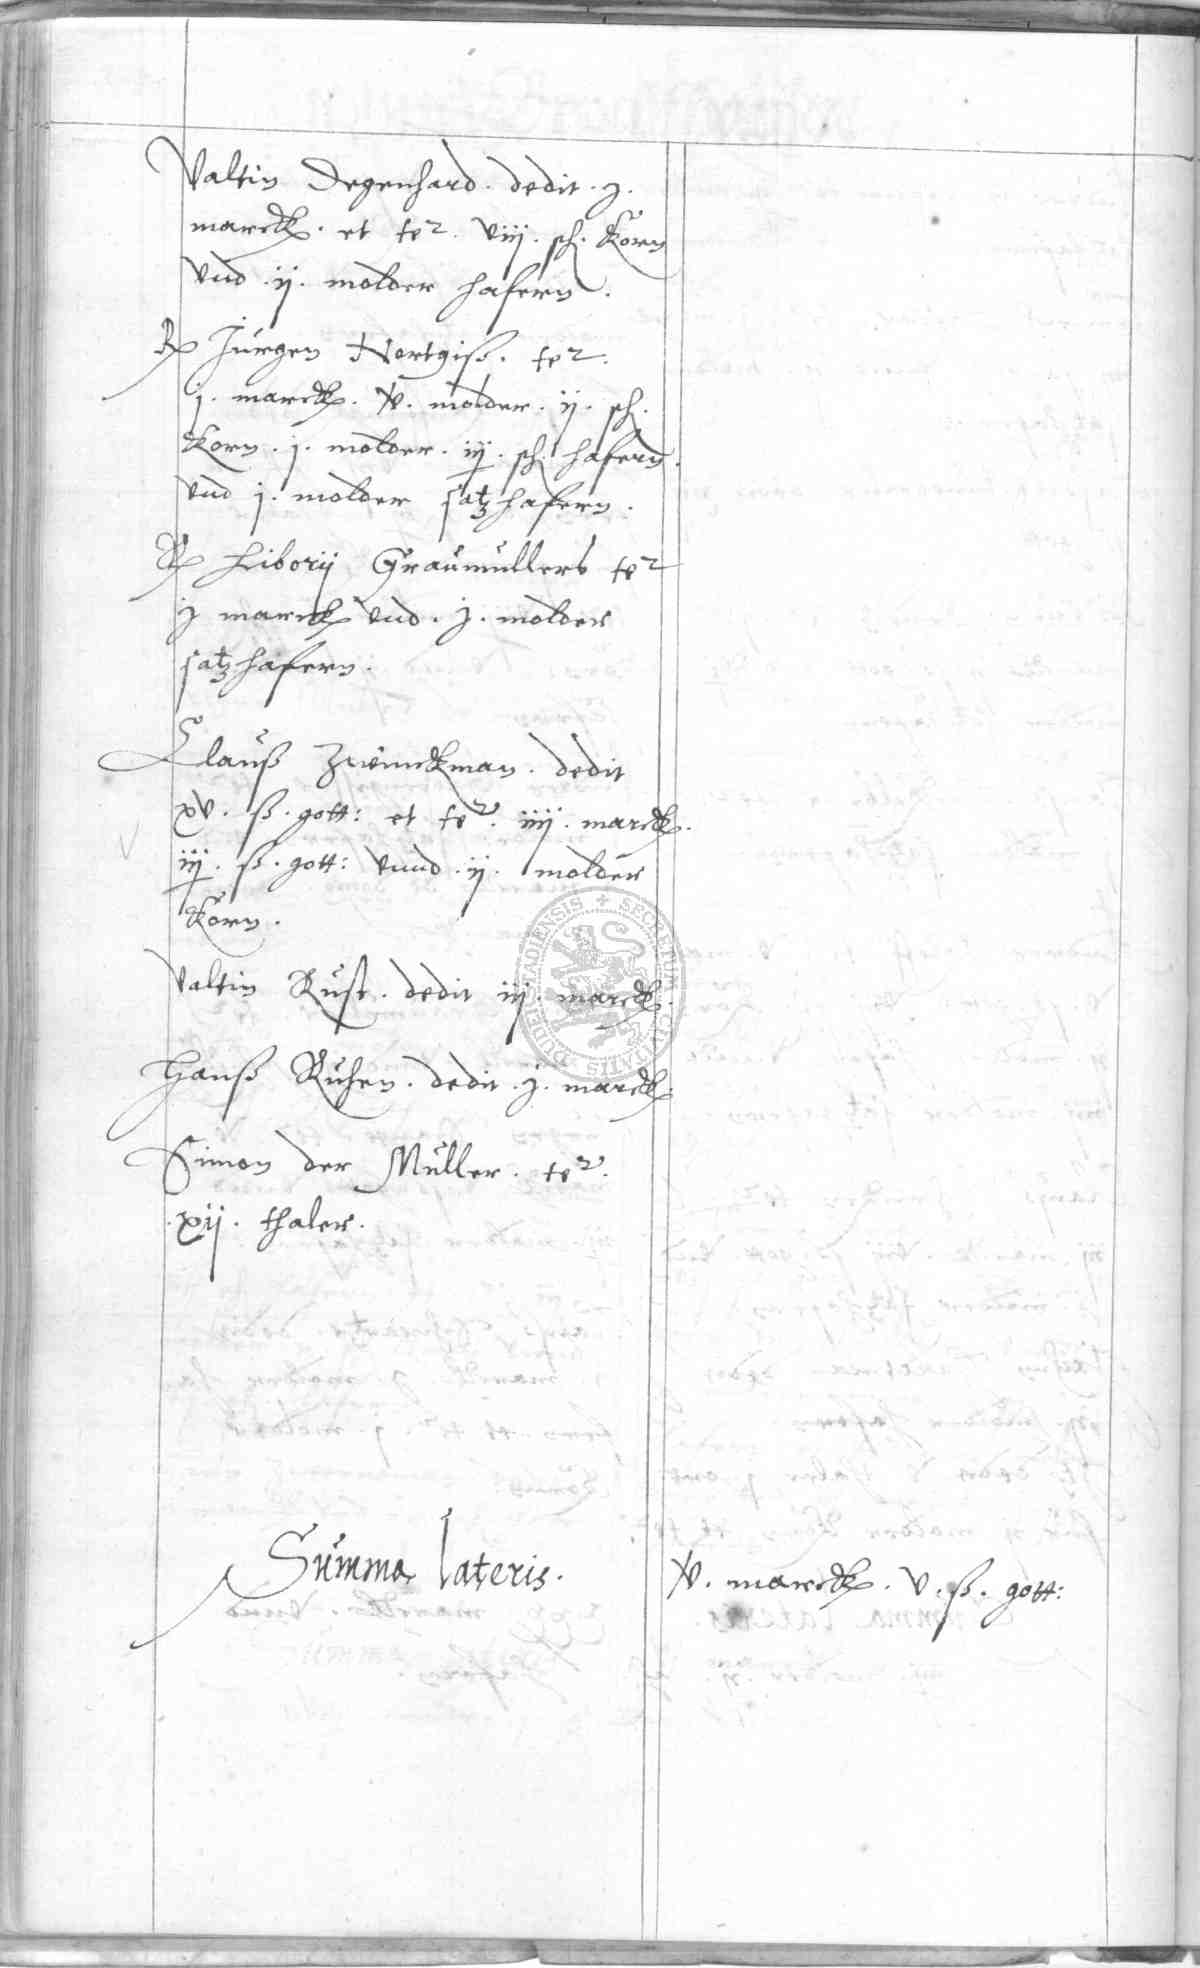 Valtin Degenhard . dedit . j .
marck . et te2 . viij . sch . Korn
vnd . ij . molder hafern .
Rx Jurgen Nortgiß . te2 .
j . marck . v . molder . ij . sch .
Korn . j . molder . iij . sch . hafern .
vnd j . molder satzhafern .
Rx Liborij Graumullers te2
j marck vnd . j . molder
satzhafern .
Clauß Zwinckman . dedit
xv . ß . gott : et te2 . iiij . marck .
iij . ß . gott : vnnd . ij . molder
Korn .
Valtin Rust . dedit iij . marck .
Hanß Ruhen . dedit . j . marck .
Simon der Müller . te2 .
. xij . thaler .
Summa lateris .
v . marck . v . ß . gott :
SECRETUM CIVITATIS DUDERSTADIENSIS